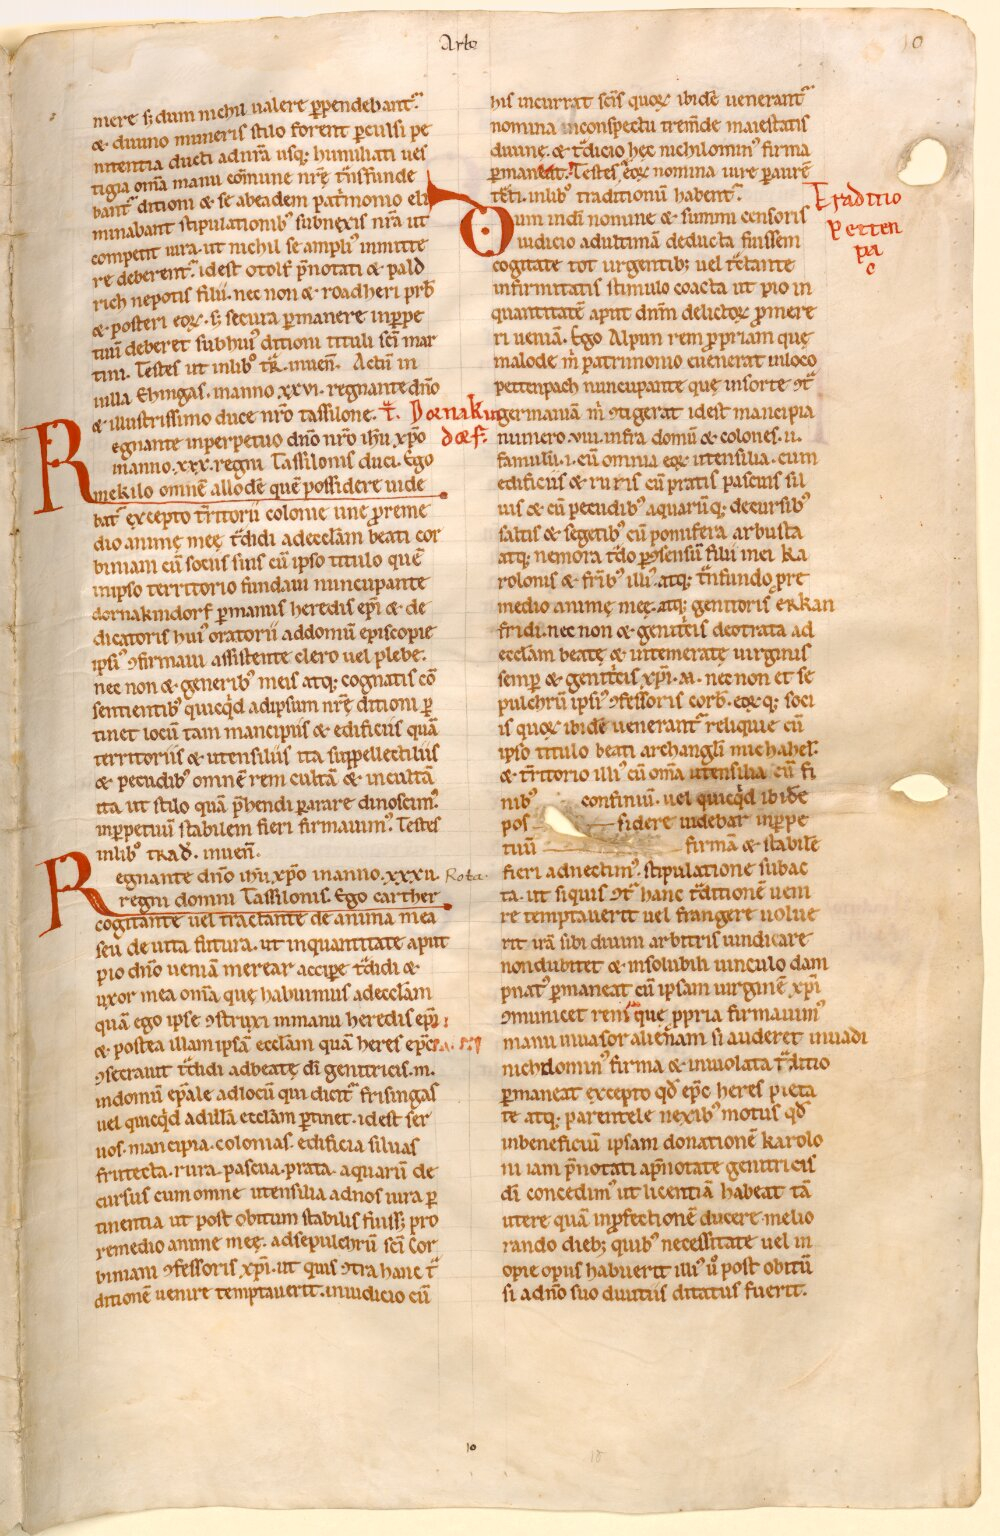 Arbo
10
mere s; dum nichil ualere ꝑpendebant᷑.
& diuino muneris stilo forent ꝑculsi pe
nitentia ducti ad iura usq; humiliati ues
tigia om̄a manu com̄une nr̄ȩ tͣnsfunde
bant᷑ ditioni & se ab eadem patͥmonio eli
minabant stipulationibꝰ subnexis nr̄a ut
competit iura. ut nichil se ampliꝰ inmitte
re deberent᷑. idest otolf p̄notati & pald
rich nepotis filii. nec non & roadheri prb̄
& posteri eoꝝ. s; secura ꝑmanere in ꝑpe
tuū deberet sub huiꝰ ditioni tituli sc̄i mar
tini. Testes ut in libꝰ tr̄. inuen̄. Actū in
uilla Ehingas. in anno .xxvi. regnante dn̄o
& illustrissimo duce nr̄o tassilone. t̄. Dornakin
dorf.
Regnante in perpetuo dn̄o nr̄o ih̄u xp̄o
in anno .xxx. regni Tassilonis duci. Ego
mekilo omnē allodē quē possidere uide
bar᷑ excepto tr̄ritorii colonie unȩ ꝓ reme
dio animȩ meȩ tͣdidi ad ecclām beati cor
biniani cū sociis suis cū ipso titulo quē
in ipso territorio fundaui nuncupante
dornakindorf ꝑ manus heredis ep̄i & de
dicatoris huiꝰ oratorii ad domū episcopiȩ
ipsiꝰ ꝯfirmaui assistente clero uel plebe.
nec non & generibꝰ meis atq; cognatis cō
sentientibꝰ quicqͥd ad ipsum nr̄ȩ ditioni ꝑ
tinet locū tam mancipiis & edificiis quā
territoriis & utensiliis ita suppellectiliis
& pecudibꝰ omnē rem cultā & incultā
ita ut stilo quā p̄hendi ꝑarare dinoscimꝰ.
in ꝑpetuū stabilem fieri firmauimꝰ. Testes
in libꝰ trad̄. inuen̄.
Regnante dn̄o ih̄u xp̄o in anno .xxxii. Rota.
regni domni Tassilonis. Ego carther
cogitante uel tractante de anima mea
seu de uita futura. ut in quantitate aput
pio dn̄o ueniā merear accipe tͣdidi &
uxor mea om̄a quȩ habuimus ad ecclām
quā ego ipse ꝯstruxi in manu heredis ep̄i
& postea illam ipsā ecclām quā heres ep̄c
ꝯsecrauit tͣdidi ad beatȩ dī genitricis .m.
in domū ep̄ale ad locū qui dicit᷑ frisingas
uel quicqͥd ad illā ecclām ꝑtinet. idest ser
uos. mancipia. colonias. edificia siluas
frutecta. rura. pascua. prata. aquarū de
cursus cum omne utensilia ad nos iura ꝑ
tinentia ut post obitum stabilis fuiss; pro
remedio animȩ meȩ. ad sepulchrū sc̄i Cor
biniani ꝯfessoris xp̄i. ut quis ꝯtra hanc tͣ
ditionē uenire temptauerit. in iudicio cū
his incurrat sc̄is quoꝝ ibidē uenerant᷑
nomina in conspectu tremēde maiestatis
diuinȩ. & tͣdicio hȩc nichilominꝰ firma
ꝑmaneat. Testes eoꝝ nomina iure ꝑ aurē
tracti. in libꝰ traditionū habent᷑.
Traditio
Petten
pac
Dum in dī nomine & summi censoris
iudicio ad ultimā deducta fuissem
cogitate tot urgentib; uel rͣctante
infirmitatis stimulo coacta ut pio in
quantitatē aput dnm̄ delictoꝝ ꝓmere
ri ueniā. Ego Alpun rem ꝓpriam quȩ
mal ode m̄ patrimonio euenerat in loco
pettenpach nuncupante quȩ in sorte ꝯtͣ
germaniā m̄ ꝯtigerat idest mancipia
numero .viii. infra domū & colones .ii.
famulū .i. cū omnia eoꝝ utensilia. cum
edificiis & ruris cū pratis pascuis sil
uis & cū pecudibꝰ aquarūq; decursibꝰ
saltis & segetibꝰ cū pomifera arbusta
atq; nemora tͣdo ꝑ ꝯsensū filii mei ka
rolonis & fr̄ibꝰ illiꝰ. atq; tͣnsfundo ꝓ re
medio animȩ meȩ. atq; genitoris erkan
fridi. nec non & genitͥcis deotrata ad
ecclām beatȩ & intemeratȩ uirginis
semꝑ & genitͥcis xp̄i .M. nec non et se
pulchrū ipsiꝰ ꝯfessoris corb̄. eoꝝq; soci
is quoꝝ ibidē uenerant᷑ reliquie cū
ipso titulo beati archangl̄i michahel᷑.
& tr̄ritorio illiꝰ cū om̄a utensilia cū fi
nibꝰ confiniū. uel quicqͥd ibidē
pos sidere uidebar in ꝑpe
tuū firmā & stabilē
fieri adnectimꝰ. stipulatione subac
ta. ut si quis ꝯtͣ hanc tͣditionē ueni
re temptauerit uel frangere uolue
rit irā sibi diuini arbitris uindicare
non dubitet & insolubili uinculo dam
pnatꝰ ꝑmaneat cū ipsam uirginē xp̄i
ꝯmunicet rem que ꝓpria firmauimꝰ
manu inuasor alienam si auderet inuadi
nichilominꝰ firma & inuiolata tͣditio
ꝑmaneat excepto qd̄ ep̄c heres pieta
te atq; parentele nexibꝰ motus qd̄
in beneficiū ipsam donationē karolo
ni iam p̄notati a p̄notate genitricis
dī concedimꝰ ut licentiā habeat tā
utere quā in ꝓfectionē ducere melio
rando dieb; quibꝰ necessitate uel in
opie opus habuerit illiꝰ ū post obitū
si a dn̄o suo diuitiis ditatus fuerit.
10